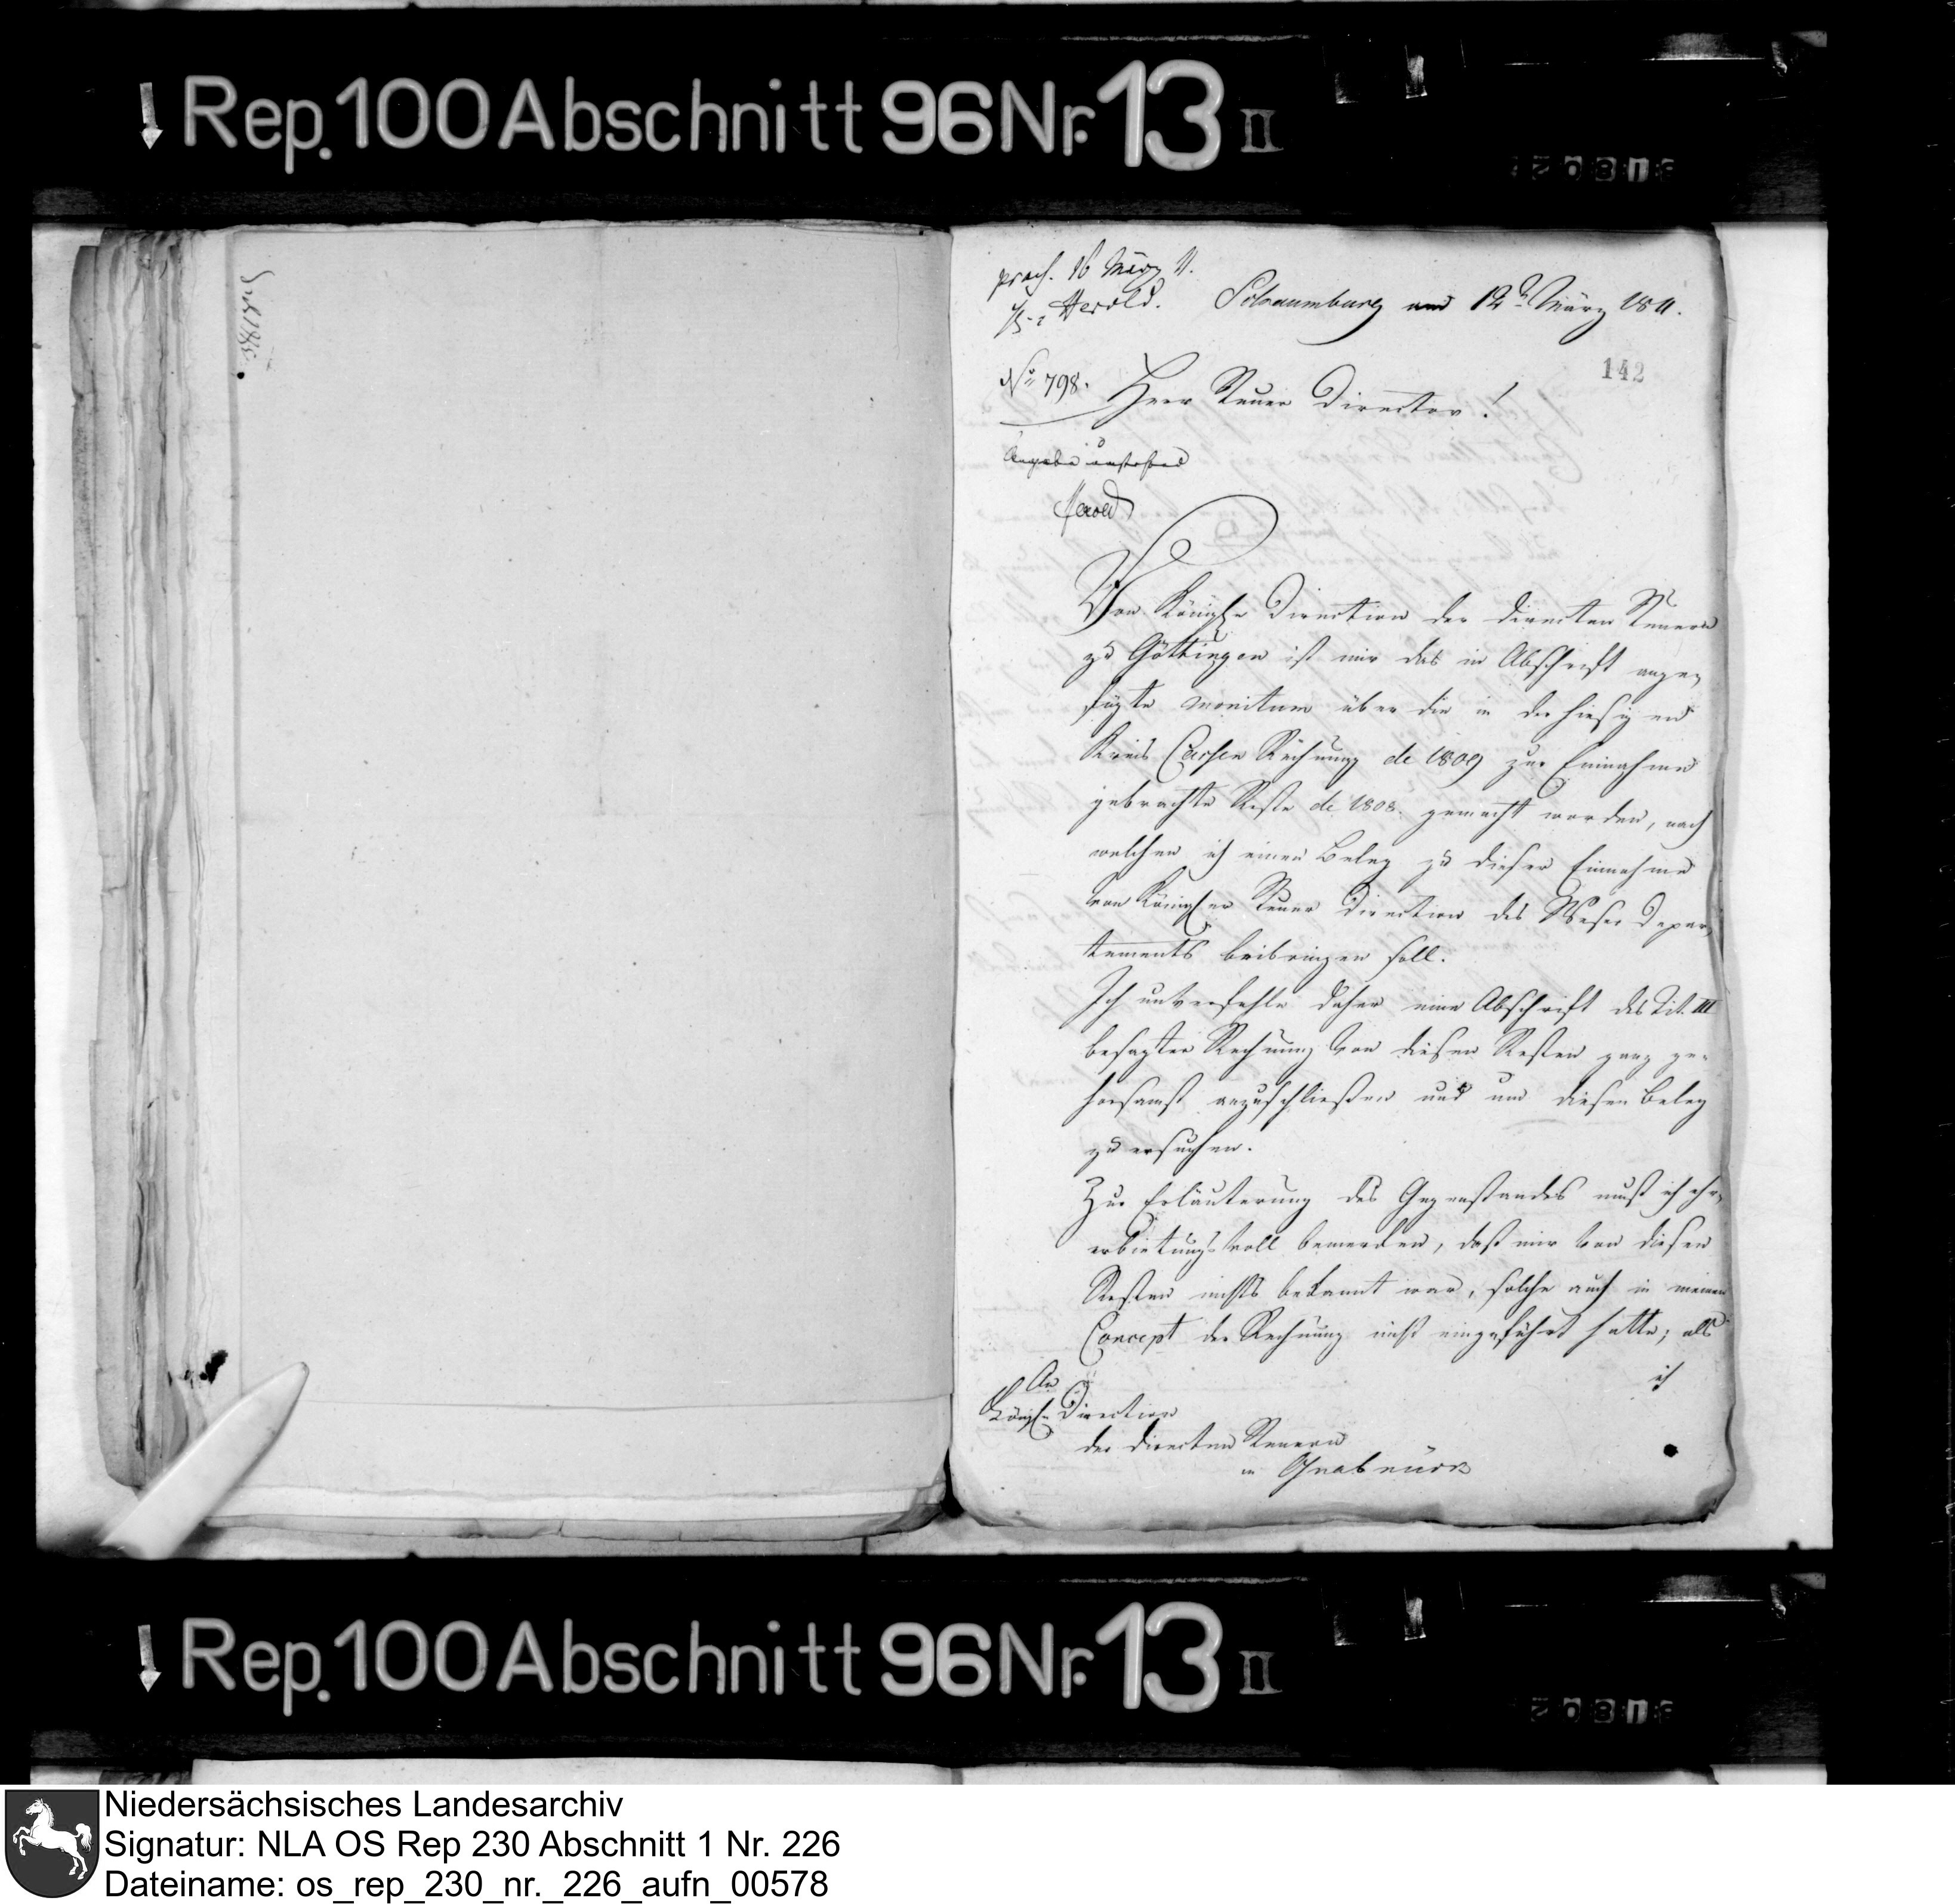 Rep. 100 Abschnitt 96 Nr. 13 II
praes. 16 März 11.
Herold.
Schaumburg am 12t März 1811.
142
No 798.
Herr Steuer Director!
Herold
Von Königlr Direction der directen Steuern
zu Göttingen ist mir das in Abschrift ange-
fügte monitum über die in der hiesigen
Kreis Cassen Rechnung de 1809 zur Einnahme
gebrachte Reste de 1808. gemacht worden, nach
welchen ich einen Beleg zu dieser Einnahme
von Königlr Steuer Direction des Weser Depar-
tements beibringen soll.
Ich unverfehle daher eine Abschrift des Tit. III
besagter Rechnung von diesen Resten ganz ge-
horsamst anzuschließen und um diesen Beleg
zu ersuchen.
Zur Erläuterung des Gegenstandes muß ich ehr-
erbietungsvoll bemerken, daß mir von diesen
Resten nichts bekannt war, solche auch in meinem
Concept der Rechnung nicht eingeführt hatte; als
ich
An
Königl. Direction
der directen Steuern
in Osnabrück
Rep. 100 Abschnitt 96 Nr. 13 II
Niedersächsisches Landesarchiv
Signatur: NLA OS Rep 230 Abschnitt 1 Nr. 226
Dateiname: os_rep_230_nr._226_aufn_00578